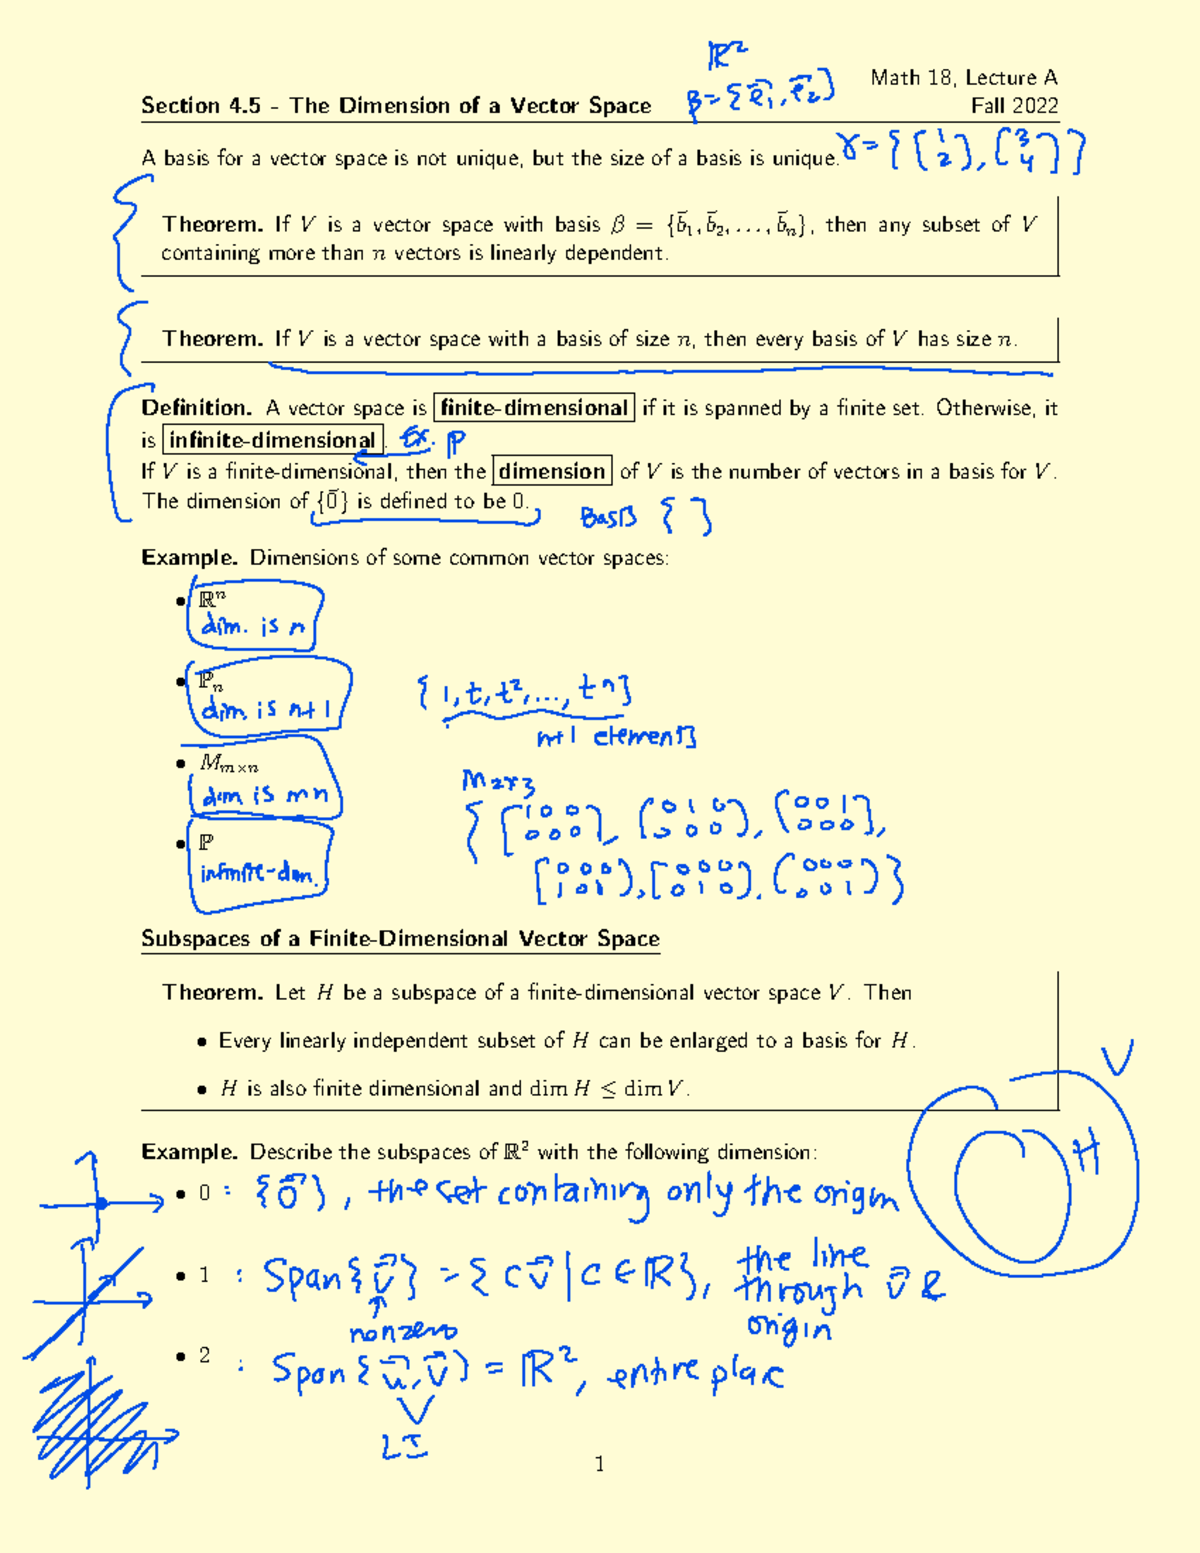 ℝ²
Math 18, Lecture A
Section 4.5 - The Dimension of a Vector Space β = {e⃗₁, e⃗₂} Fall 2022
A basis for a vector space is not unique, but the size of a basis is unique. γ = {[1 2], [3 4]}
Theorem. If V is a vector space with basis β = {b̄₁, b̄₂, ..., b̄ₙ}, then any subset of V
containing more than n vectors is linearly dependent.
Theorem. If V is a vector space with a basis of size n, then every basis of V has size n.
Definition. A vector space is finite-dimensional if it is spanned by a finite set. Otherwise, it
is infinite-dimensional. Ex. ℙ
If V is a finite-dimensional, then the dimension of V is the number of vectors in a basis for V.
The dimension of {0̄} is defined to be 0. Basis { }
Example. Dimensions of some common vector spaces:
• ℝⁿ
dim. is n
• ℙₙ
{1, t, t², ..., tⁿ}
dim is n+1
n+1 elements
• Mₘₓₙ
M₂ₓ₃
dim is mn
{[1 0 0 / 0 0 0], [0 1 0 / 0 0 0], [0 0 1 / 0 0 0],
• ℙ
infinite-dim.
[0 0 0 / 1 0 0], [0 0 0 / 0 1 0], [0 0 0 / 0 0 1]}
Subspaces of a Finite-Dimensional Vector Space
Theorem. Let H be a subspace of a finite-dimensional vector space V. Then
• Every linearly independent subset of H can be enlarged to a basis for H.
V
• H is also finite dimensional and dim H ≤ dim V.
Example. Describe the subspaces of ℝ² with the following dimension:
H
• 0 : {0⃗}, the set containing only the origin
• 1 : Span{v⃗} = {cv⃗ | c ∈ ℝ}, the line
through v⃗ &
nonzero
origin
• 2 : Span{u⃗, v⃗} = ℝ², entire plane
LI
1